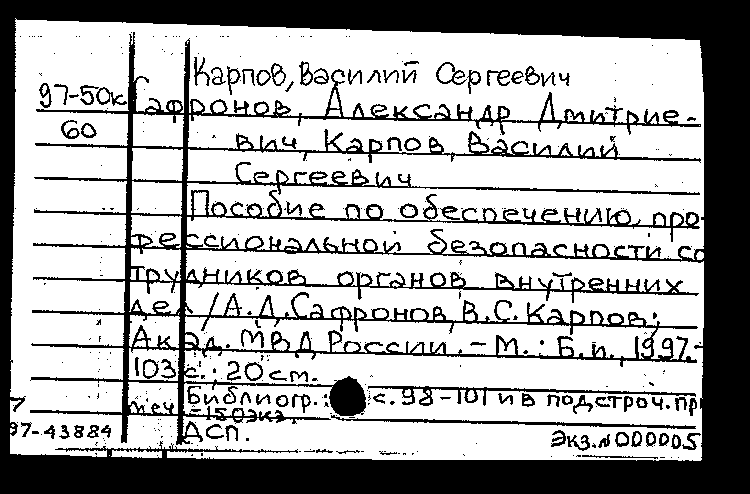 Карпов, Василий Сергеевич
97-50к Сафронов, Александр Дмитрие-
60 вич, Карпов, Василий
Сергеевич
Пособие по обеспечению про-
фессиональной безопасности со
трудников органов внутренних
дел / А.Д. Сафронов, В.С. Карпов;
Акад. МВД России. - М. : Б.и., 1997. -
103 с. ; 20 см.
Библиогр.: с. 98-101 и в подстроч. пр
- 150 экз.
97-43884 ДСП. Экз. № 000005